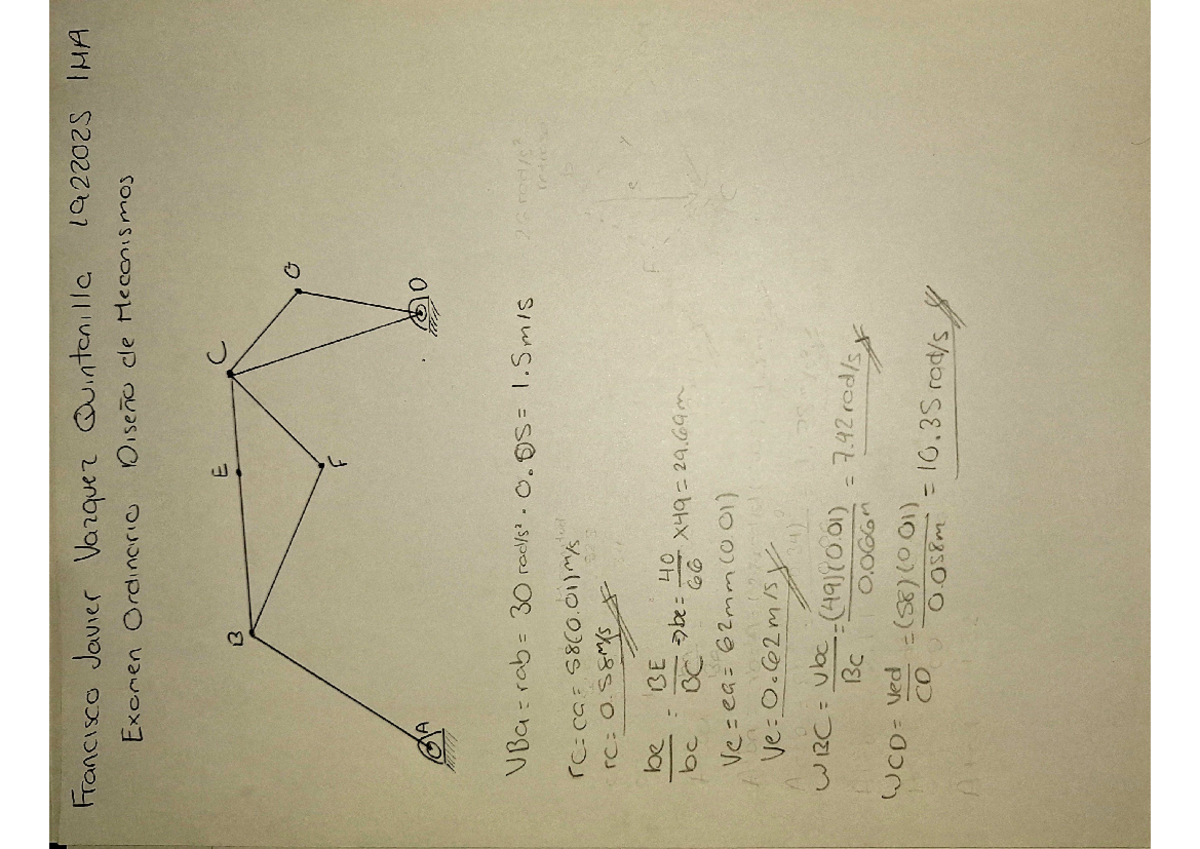 Francisco Javier Vazquez Quintanilla 1922025 IMA
Examen Ordinario Diseño de Mecanismos
B
E
C
G
F
A
D
VBa = rab = 30 rad/s² · 0.05 = 1.5 m/s
rc = ca = 58(0.01) m/s
rc = 0.58 m/s
be/bc = BE/BC => be = 40/66 x 49 = 29.69m
Ve = ea = 62mm (0.01)
Ve = 0.62 m/s
WBC = Vbc/BC = (49)(0.01)/0.066m = 7.42 rad/s
WCD = Ved/CD = (58)(0.01)/0.058m = 10.35 rad/s